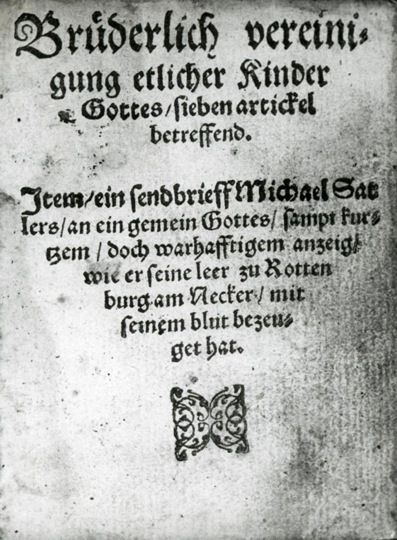 Brüderlich vereini⸗
gung etlicher Kinder
Gottes/sieben artickel
betreffend.
Item/ein sendbrieff Michael Sat
lers/an ein gemein Gottes/ sampt kur⸗
tzem / doch warhafftigem anzeig/
wie er seine leer zu Rotten
burg am Necker/ mit
seinem blut bezeu⸗
get hat.